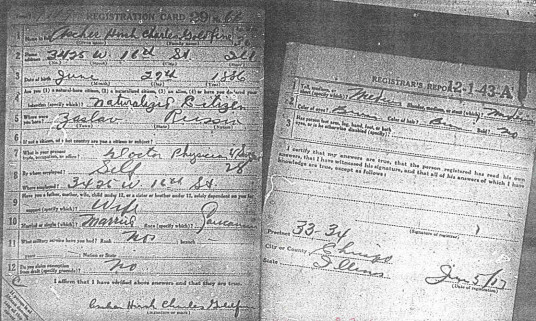 REGISTRATION CARD 29 No. 66
1 Name in full Ascher Hirsh Charles Goldfine
(Given name) (Family name)
2 Home address 3425 W. 16th St. Ill
3 Date of birth June 29th 1886
(Month) (Day) (Year)
4 Are you (1) a natural-born citizen, (2) a naturalized citizen, (3) an alien, (4) or have you declared your
intention (specify which)? Naturalized Citizen
5 Where were you born? Zaslav Russia
(Town) (State) (Nation)
6 If not a citizen, of what country are you a citizen or subject?
7 What is your present trade, occupation, or office? Doctor Physician
8 By whom employed? Self
Where employed? 3425 W. 16th St.
9 Have you a father, mother, wife, child under 12, or a sister or brother under 12, solely dependent on you for
support (specify which)? Wife
10 Married or single (which)? Married Race (specify which)? Caucasian
11 What military service have you had? Rank No branch
years Nation or State
12 Do you claim exemption from draft (specify grounds)? No
I affirm that I have verified above answers and that they are true.
Asher Hirsh Charles Goldf
(Signature or mark)
REGISTRAR'S REPORT 12-1-43-A
1 Tall, medium, or short (specify which)? Medium Slender, medium, or stout (which)? Medium
2 Color of eyes? Brown Color of hair? Brown Bald? No
3 Has person lost arm, leg, hand, foot, or both
eyes, or is he otherwise disabled (specify)?
I certify that my answers are true, that the person registered has read his own
answers, that I have witnessed his signature, and that all of his answers of which I have
knowledge are true, except as follows:
(Signature of registrar)
Precinct 33-34
City or County Chicago
State Illinois
June 5/17
(Date of registration)